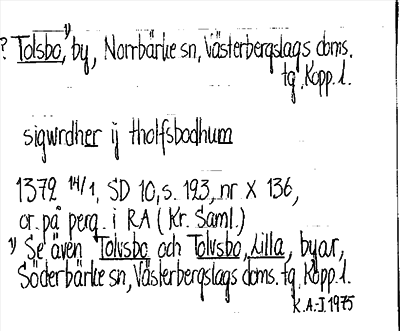 ? Tolsbo,¹⁾ by, Norrbärke sn, Västerbergslags doms.
tg, Kopp. l.
sigwrdher ij tholfsbodhum
1372 14/1, SD 10, s. 123, nr X 136,
or. på perg. i RA (Kr. Saml.)
¹⁾ Se även Tolvsbo och Tolvsbo, Lilla, byar,
Söderbärke sn, Västerbergslags doms. tg, Kopp. l.
K.A-J 1975